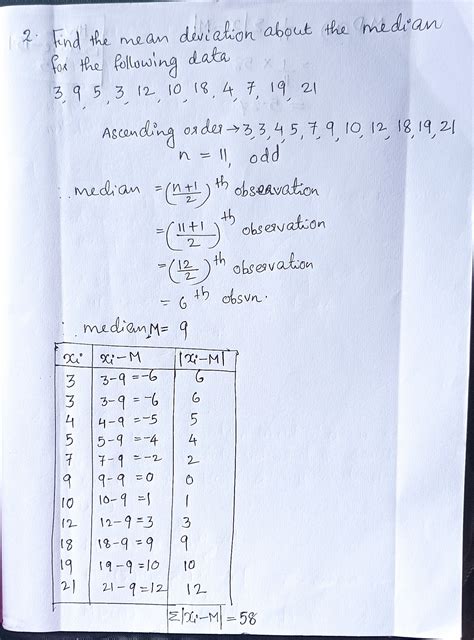 2. Find the mean deviation about the median
for the following data
3, 9, 5, 3, 12, 10, 18, 4, 7, 19, 21
Ascending order → 3, 3, 4, 5, 7, 9, 10, 12, 18, 19, 21
n = 11, odd
∴ median = (n+1/2)th observation
= (11+1/2)th observation
= (12/2)th observation
= 6th obsvn.
∴ median, M = 9
xi | xi - M | |xi - M|
3 | 3-9 = -6 | 6
3 | 3-9 = -6 | 6
4 | 4-9 = -5 | 5
5 | 5-9 = -4 | 4
7 | 7-9 = -2 | 2
9 | 9-9 = 0 | 0
10 | 10-9 = 1 | 1
12 | 12-9 = 3 | 3
18 | 18-9 = 9 | 9
19 | 19-9 = 10 | 10
21 | 21-9 = 12 | 12
Σ|xi-M| = 58